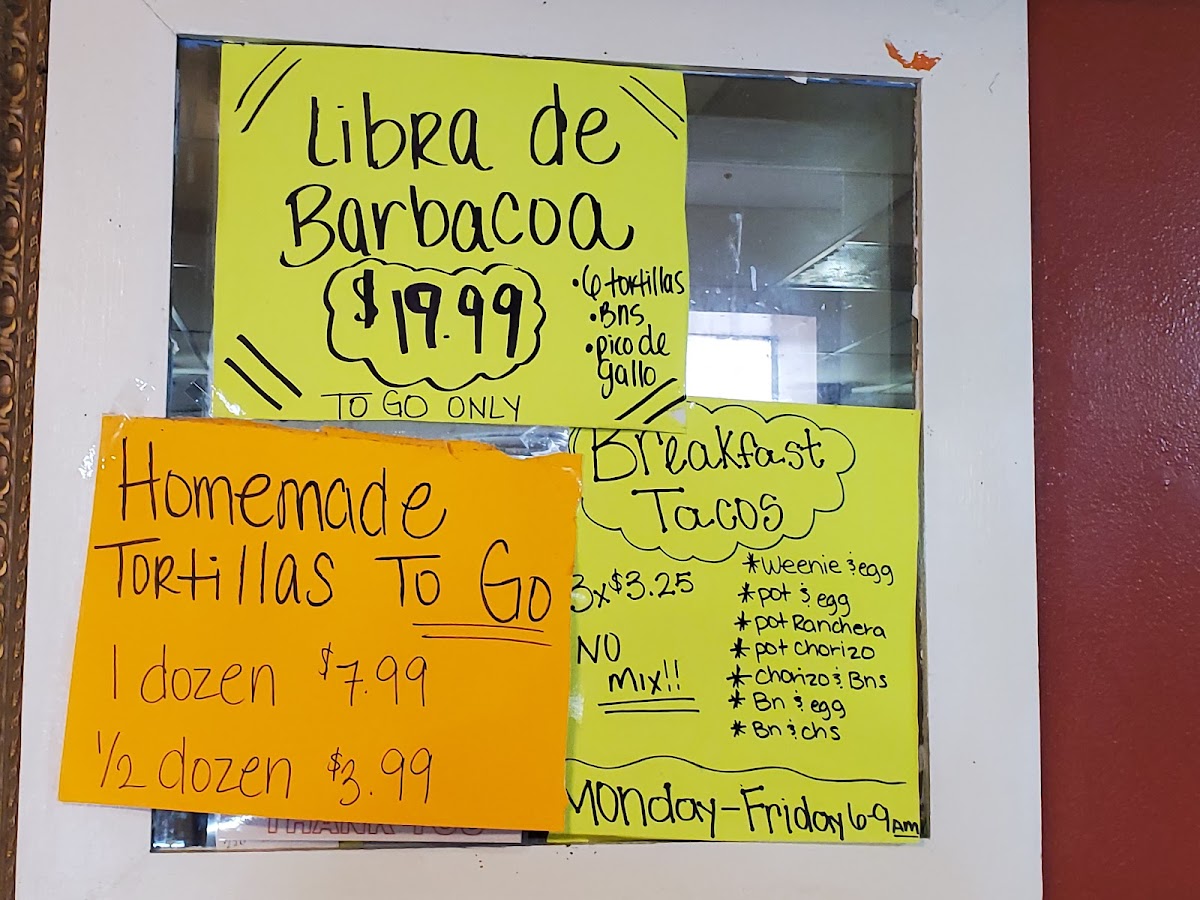 Libra de
Barbacoa
$19.99
•6 tortillas
•Bns
•pico de
gallo
TO GO ONLY
Homemade
Tortillas To Go
1 dozen $7.99
1/2 dozen $3.99
Breakfast
Tacos
3x$3.25
NO
Mix!!
*Weenie & egg
*pot & egg
*pot Ranchera
*pot chorizo
*chorizo & Bns
*Bn & egg
*Bn & chs
Monday-Friday 6-9 AM
THANK YOU